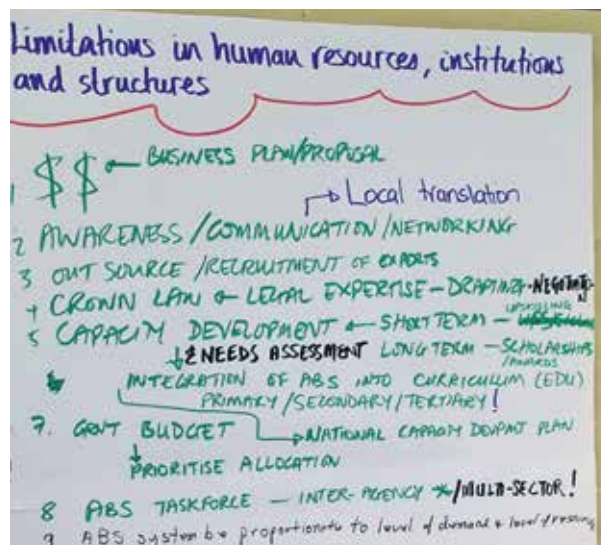 Limitations in human resources, institutions
and structures
1 $$ ← BUSINESS PLAN/PROPOSAL
→ Local translation
2 AWARENESS / COMMUNICATION / NETWORKING
3 OUT SOURCE / RECRUITMENT OF EXPERTS
4 CROWN LAW ← LEGAL EXPERTISE – DRAFTING
5 CAPACITY DEVELOPMENT ← SHORT TERM – UPSKILLING
↓ & NEEDS ASSESSMENT LONG TERM – SCHOLARSHIPS
/AWARDS
INTEGRATION OF ABS INTO CURRICULUM (EDU)
PRIMARY / SECONDARY / TERTIARY!
7. GOVT BUDGET → NATIONAL CAPACITY DEVPMT PLAN
↓ PRIORITISE ALLOCATION
8 ABS TASKFORCE – INTER-AGENCY /MULTI-SECTOR!
9 ABS system be proportionate to level of demand & local